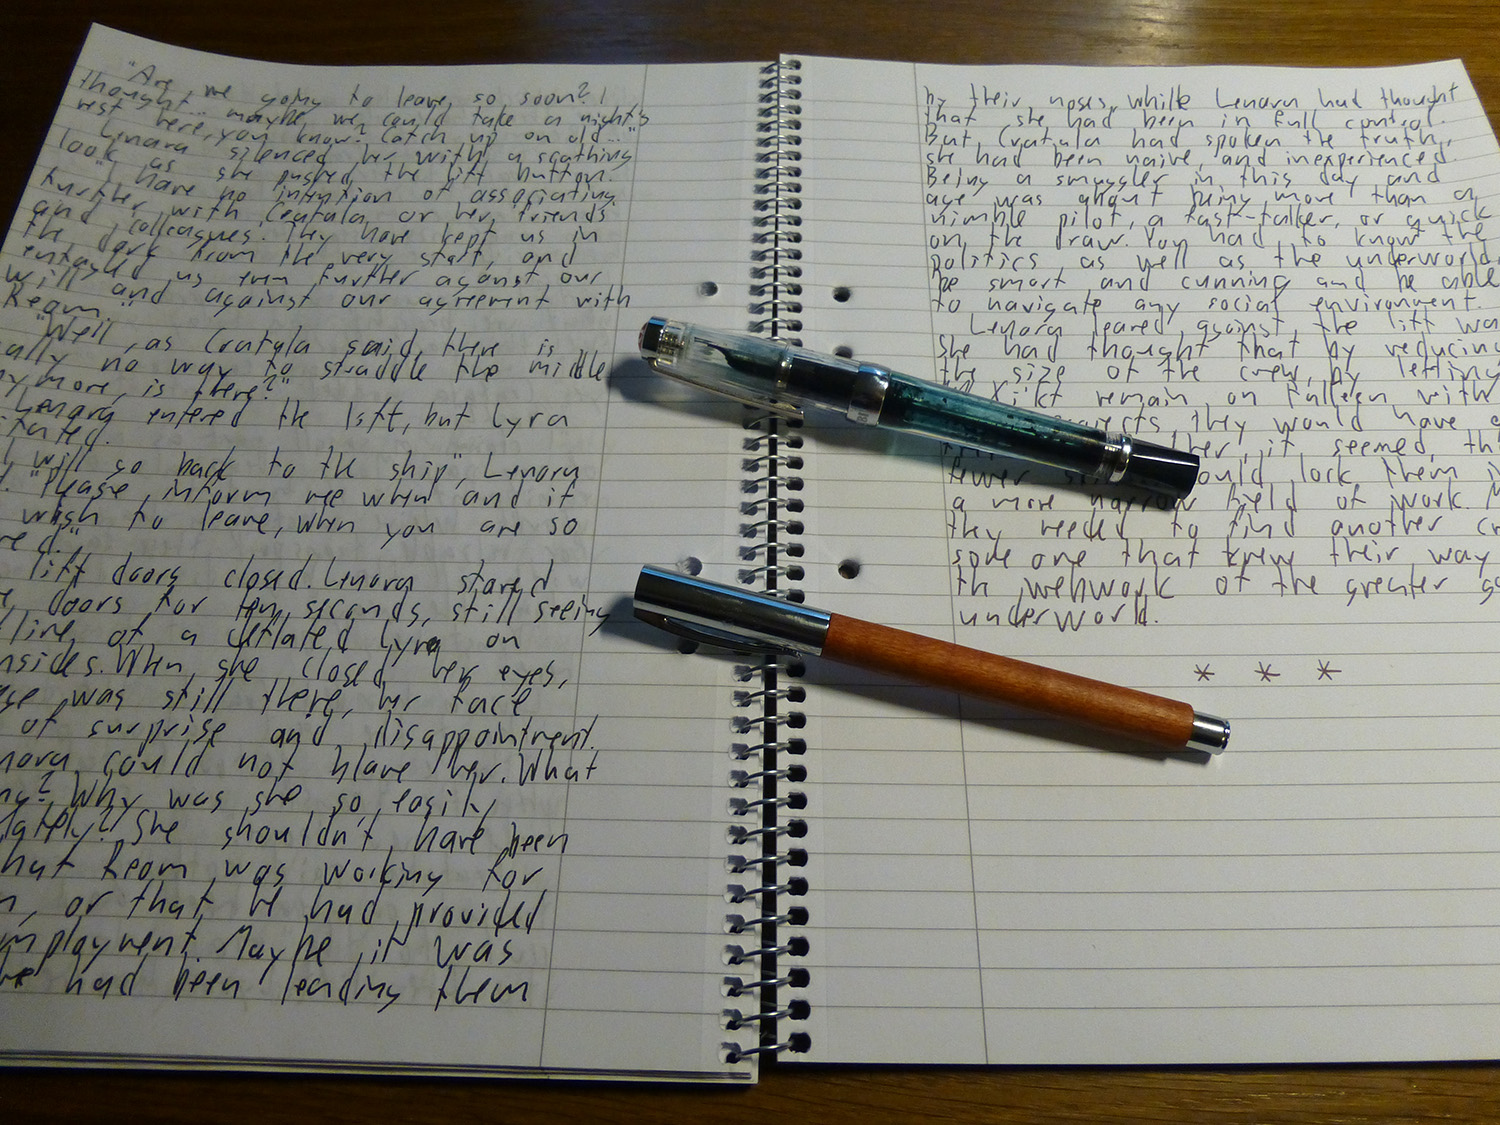 "Are we going to leave so soon? I
thought... maybe we could take a night's
rest here, you know? Catch up on old..."
Lenara silenced her with a scathing
look as she pushed the lift button.
"I have no intention of associating
further with Cratala or her 'friends
and colleagues'. They have kept us in
the dark from the very start, and
entangled us even further against our
will and against our agreement with
Ream."
"Well, as Cratala said, there is
ally no way to straddle the middle
nymore, is there?"
Lenara entered the lift, but Lyra
itated.
I will go back to the ship", Lenara
"Please, inform me when and if
wish to leave, when you are so
red."
lift doors closed. Lenara stared
doors for ten seconds, still seeing
line of a deflated Lyra on
nsides. When she closed her eyes,
age was still there, her face
of surprise and disappointment.
nara could not blame her. What
ng? Why was she so easily
lately? She shouldn't have been
hat Ream was working for
n, or that he had provided
mployment. Maybe it was
he had been leading them
by their noses, while Lenara had thought
that she had been in full control.
But Cratala had spoken the truth,
she had been naive, and inexperienced.
Being a smuggler in this day and
age was about being more than a
nimble pilot, a fast-talker, or quick
on the draw. You had to know the
politics as well as the underworld,
be smart and cunning and be able
to navigate any social environment.
Lenara leaned against the lift wa
She had thought that by reducing
the size of the crew, by letting
remain on Falleen with
ects, they would have
her, it seemed, th
fewer ould lock them i
a more narrow field of work.
they needed to find another cr
some one that knew their way
th webwork of the greater ga
underworld.
* * *